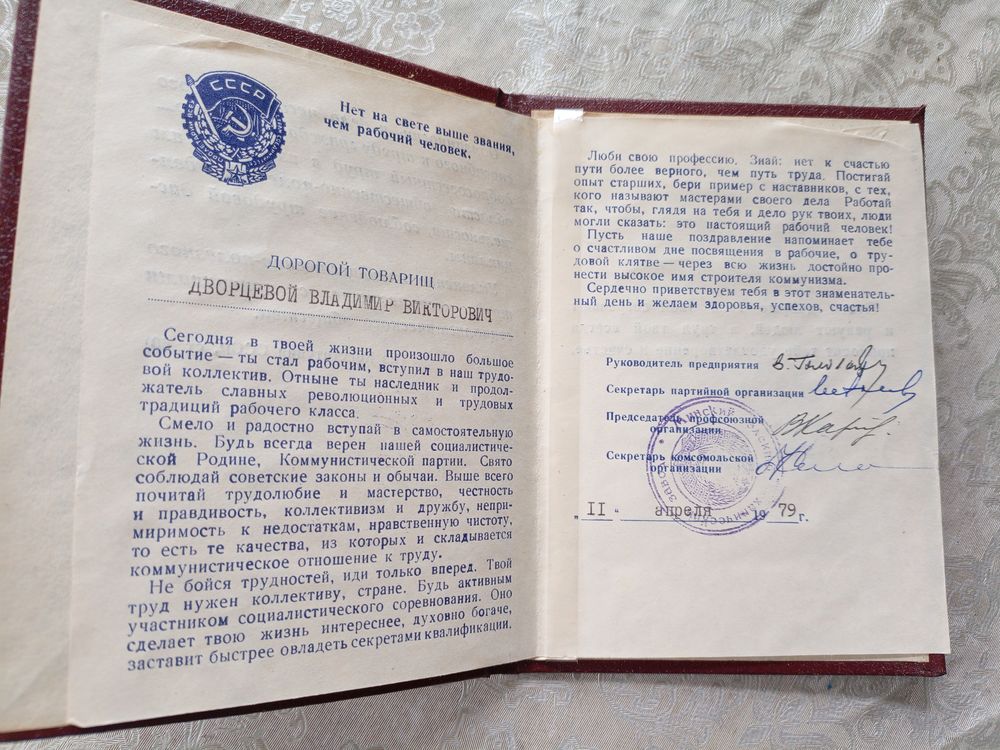 СССР
Нет на свете выше звания,
чем рабочий человек.
ДОРОГОЙ ТОВАРИЩ
ДВОРЦЕВОЙ ВЛАДИМИР ВИКТОРОВИЧ
Сегодня в твоей жизни произошло большое
событие — ты стал рабочим, вступил в наш трудо-
вой коллектив. Отныне ты наследник и продол-
жатель славных революционных и трудовых
традиций рабочего класса.
Смело и радостно вступай в самостоятельную
жизнь. Будь всегда верен нашей социалистиче-
ской Родине, Коммунистической партии. Свято
соблюдай советские законы и обычаи. Выше всего
почитай трудолюбие и мастерство, честность
и правдивость, коллективизм и дружбу, непри-
миримость к недостаткам, нравственную чистоту,
то есть те качества, из которых и складывается
коммунистическое отношение к труду.
Не бойся трудностей, иди только вперед. Твой
труд нужен коллективу, стране. Будь активным
участником социалистического соревнования. Оно
сделает твою жизнь интереснее, духовно богаче,
заставит быстрее овладеть секретами квалификации.
Люби свою профессию. Знай: нет к счастью
пути более верного, чем путь труда. Постигай
опыт старших, бери пример с наставников, с тех,
кого называют мастерами своего дела Работай
так, чтобы, глядя на тебя и дело рук твоих, люди
могли сказать: это настоящий рабочий человек!
Пусть наше поздравление напоминает тебе
о счастливом дне посвящения в рабочие, о тру-
довой клятве — через всю жизнь достойно про-
нести высокое имя строителя коммунизма.
Сердечно приветствуем тебя в этот знаменатель-
ный день и желаем здоровья, успехов, счастья!
Руководитель предприятия
Секретарь партийной организации
Председатель профсоюзной
организации
Секретарь комсомольской
организации
„ II " апреля 19 79 г.